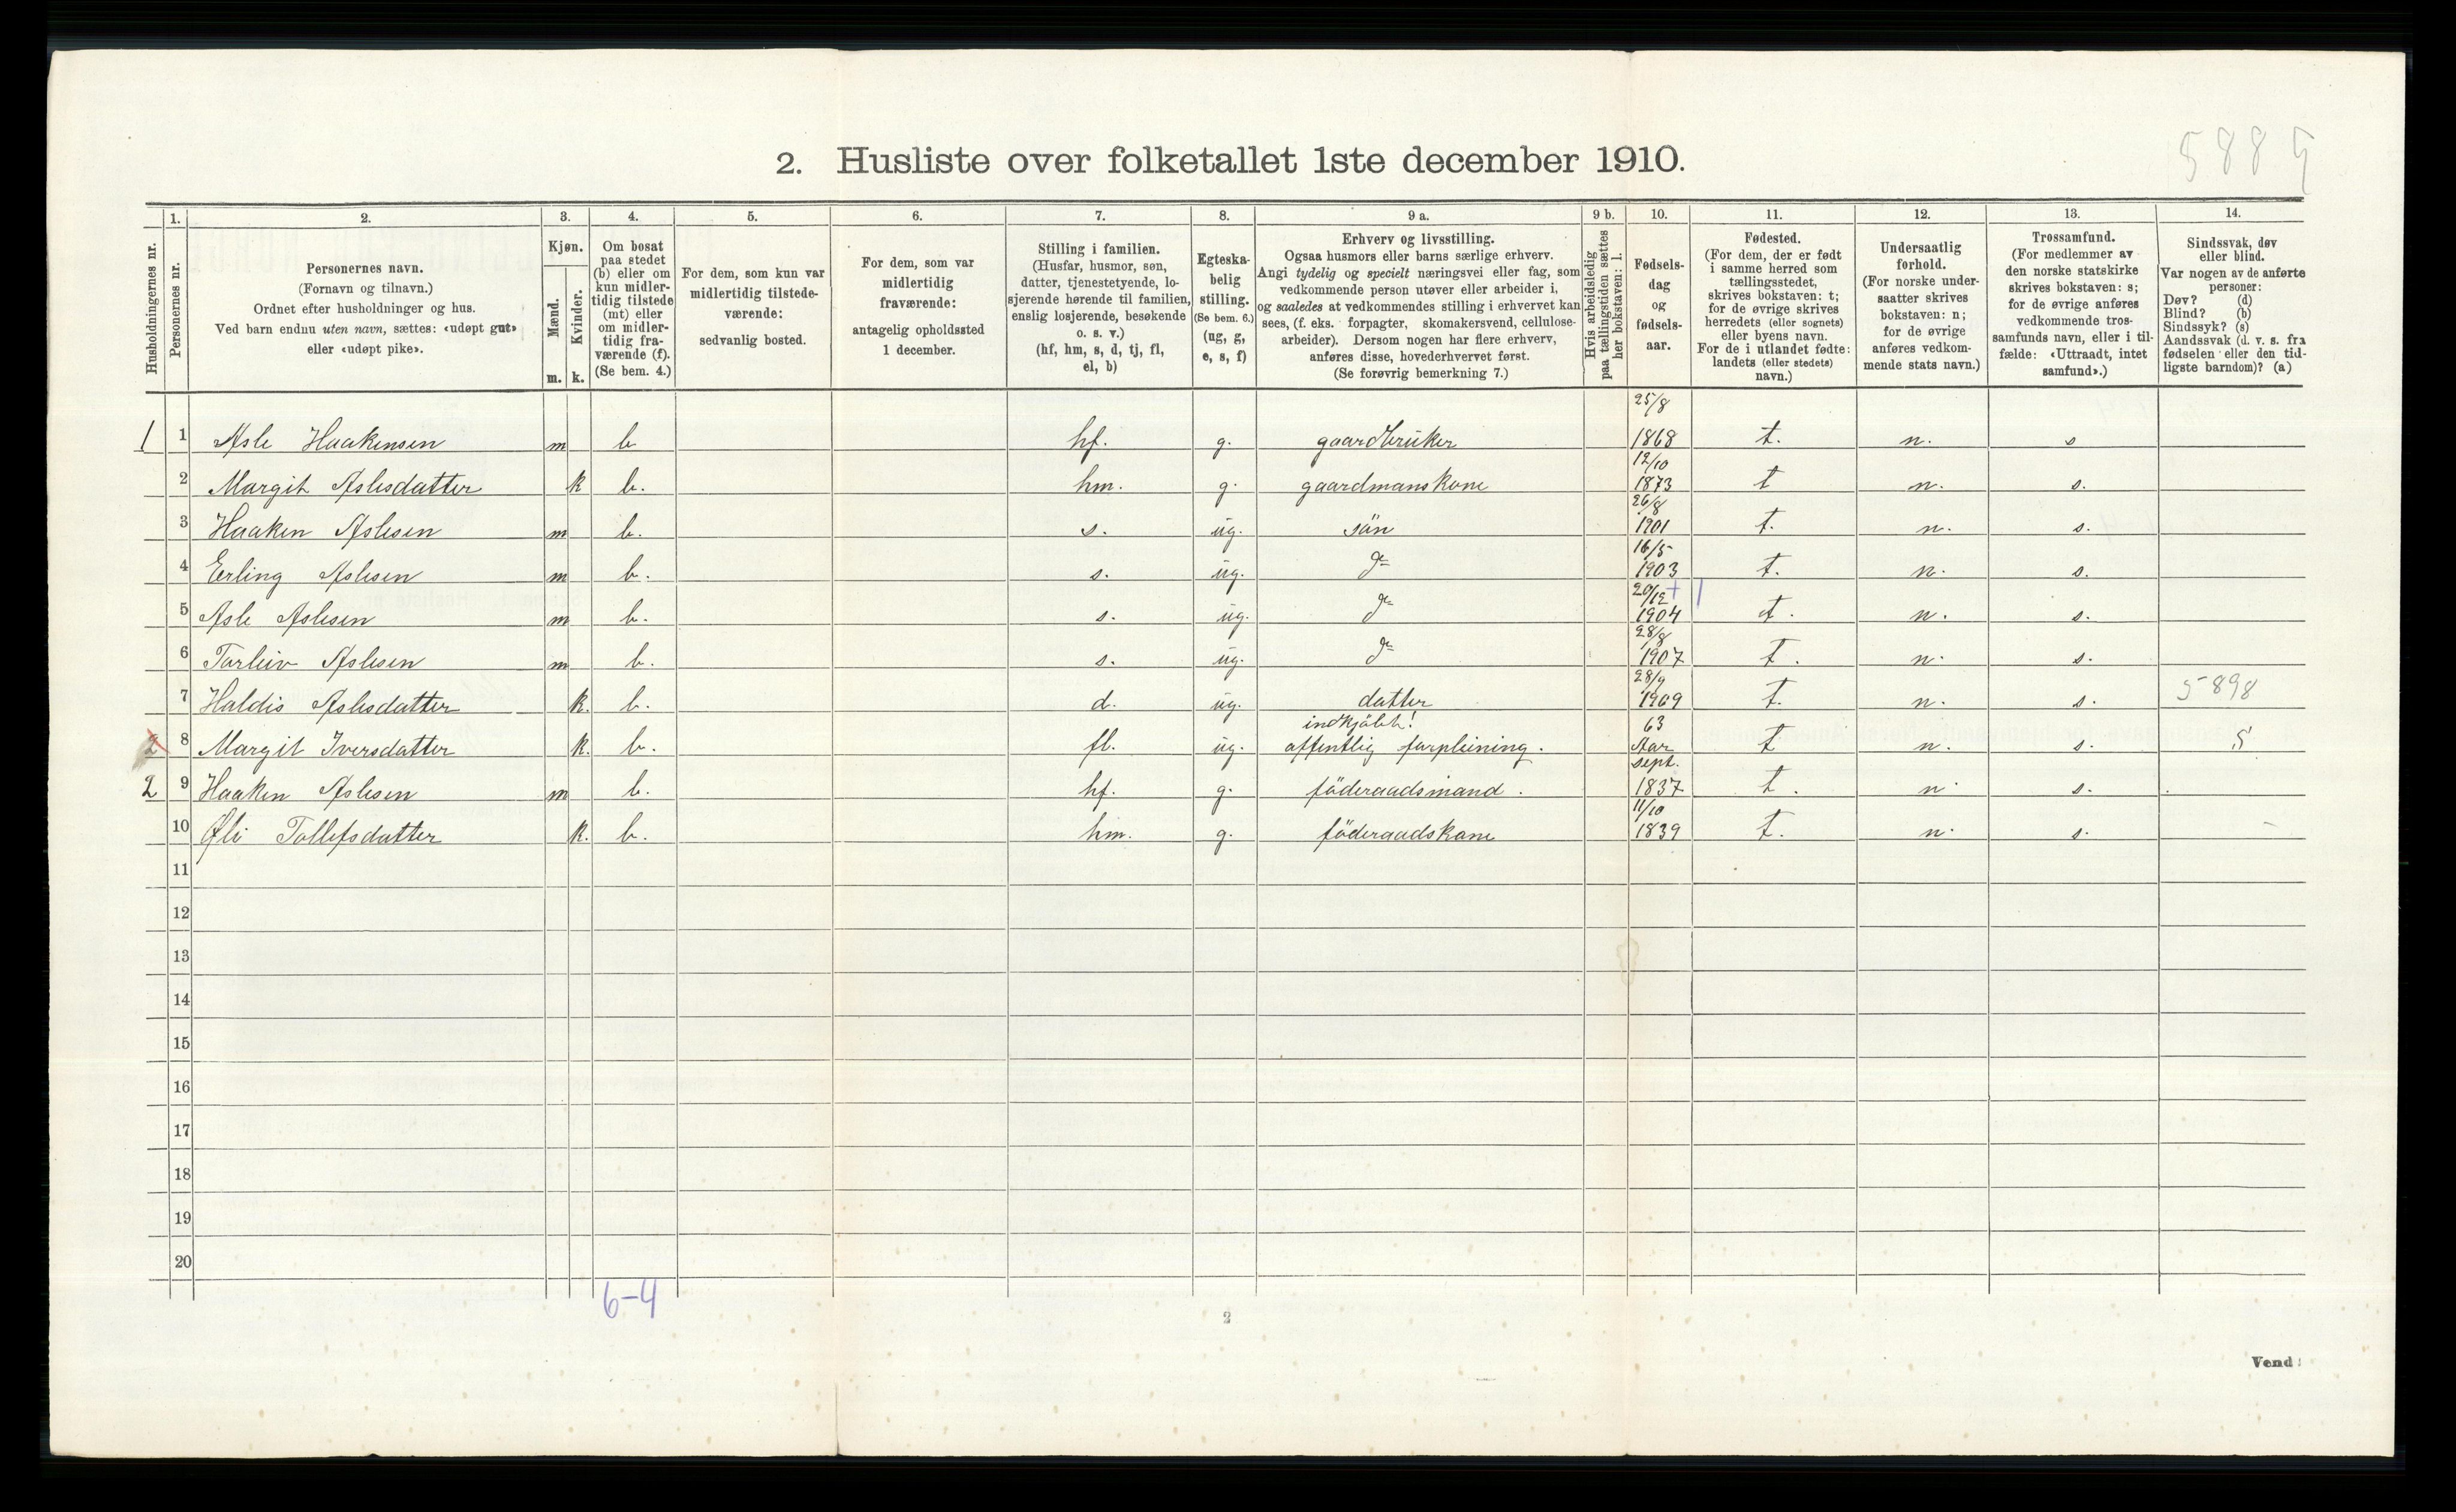 5889
2. Husliste over folketallet 1ste december 1910.
Husholdningernes nr.
1. Personernes nr.
2. Personernes navn.
(Fornavn og tilnavn.)
Ordnet efter husholdninger og hus.
Ved barn endnu uten navn, sættes: «udøpt gut»
eller «udøpt pike».
3. Kjøn.
Mænd. m.
Kvinder. k.
4. Om bosat
paa stedet
(b) eller om
kun midler-
tidig tilstede
(mt) eller
om midler-
tidig fra-
værende (f).
(Se bem. 4.)
5. For dem, som kun var
midlertidig tilstede-
værende:
sedvanlig bosted.
6. For dem, som var
midlertidig
fraværende:
antagelig opholdssted
1 december.
7. Stilling i familien.
(Husfar, husmor, søn,
datter, tjenestetyende, lo-
sjerende hørende til familien,
enslig losjerende, besøkende
o. s. v.)
(hf, hm, s, d, tj, fl,
el, b)
8. Egteska-
belig
stilling.
(Se bem. 6.)
(ug, g,
e, s, f)
9 a. Erhverv og livsstilling.
Ogsaa husmors eller barns særlige erhverv.
Angi tydelig og specielt næringsvei eller fag, som
vedkommende person utøver eller arbeider i,
og saaledes at vedkommendes stilling i erhvervet kan
sees, (f. eks. forpagter, skomakersvend, cellulose-
arbeider). Dersom nogen har flere erhverv,
anføres disse, hovederhvervet først.
(Se forøvrig bemerkning 7.)
9 b. Hvis arbeidsledig
paa tællingstiden sættes
her bokstaven: l.
10. Fødsels-
dag
og
fødsels-
aar.
11. Fødested.
(For dem, der er født
i samme herred som
tællingsstedet,
skrives bokstaven: t;
for de øvrige skrives
herredets (eller sognets)
eller byens navn.
For de i utlandet fødte:
landets (eller stedets)
navn.)
12. Undersaatlig
forhold.
(For norske under-
saatter skrives
bokstaven: n;
for de øvrige
anføres vedkom-
mende stats navn.)
13. Trossamfund.
(For medlemmer av
den norske statskirke
skrives bokstaven: s;
for de øvrige anføres
vedkommende tros-
samfunds navn, eller i til-
fælde: «Uttraadt, intet
samfund».)
14. Sindssvak, døv
eller blind.
Var nogen av de anførte
personer:
Døv? (d)
Blind? (b)
Sindssyk? (s)
Aandssvak (d. v. s. fra
fødselen eller den tid-
ligste barndom)? (a)
1 1 Asle Haakensen m b hf. g. gaardbruker 25/8 1868 t. n. s
2 Margit Aslesdatter k b. hm. g. gaardmanskone 12/10 1873 t n. s.
3 Haaken Aslesen m b. s. ug. sön 26/8 1901 t. n. s.
4 Erling Aslesen m b. s. ug. do 16/5 1903 t. n. s.
5 Asle Aslesen m b. s. ug. do 20/12 + 1 1904 t. n. s.
6 Torleiv Aslesen m b. s. ug. do 28/8 1907 t. n. s.
7 Haldis Aslesdatter k. b. d. ug. datter 28/9 1909 t. n. s. 5898
2 8 Margit Iversdatter k. b. fl. ug. indkjöbt! offentlig forpleining. 63 Aar t n. s. S
2 9 Haaken Aslesen m b. hf. g. föderaadsmand. sept. 1837 t. n. s.
10 Öli Tollefsdatter k. b. hm. g. föderaadskone 11/10 1839 t. n. s. -
11
12
13
14
15
16
17
18
19
20
6-4
2
Vend!